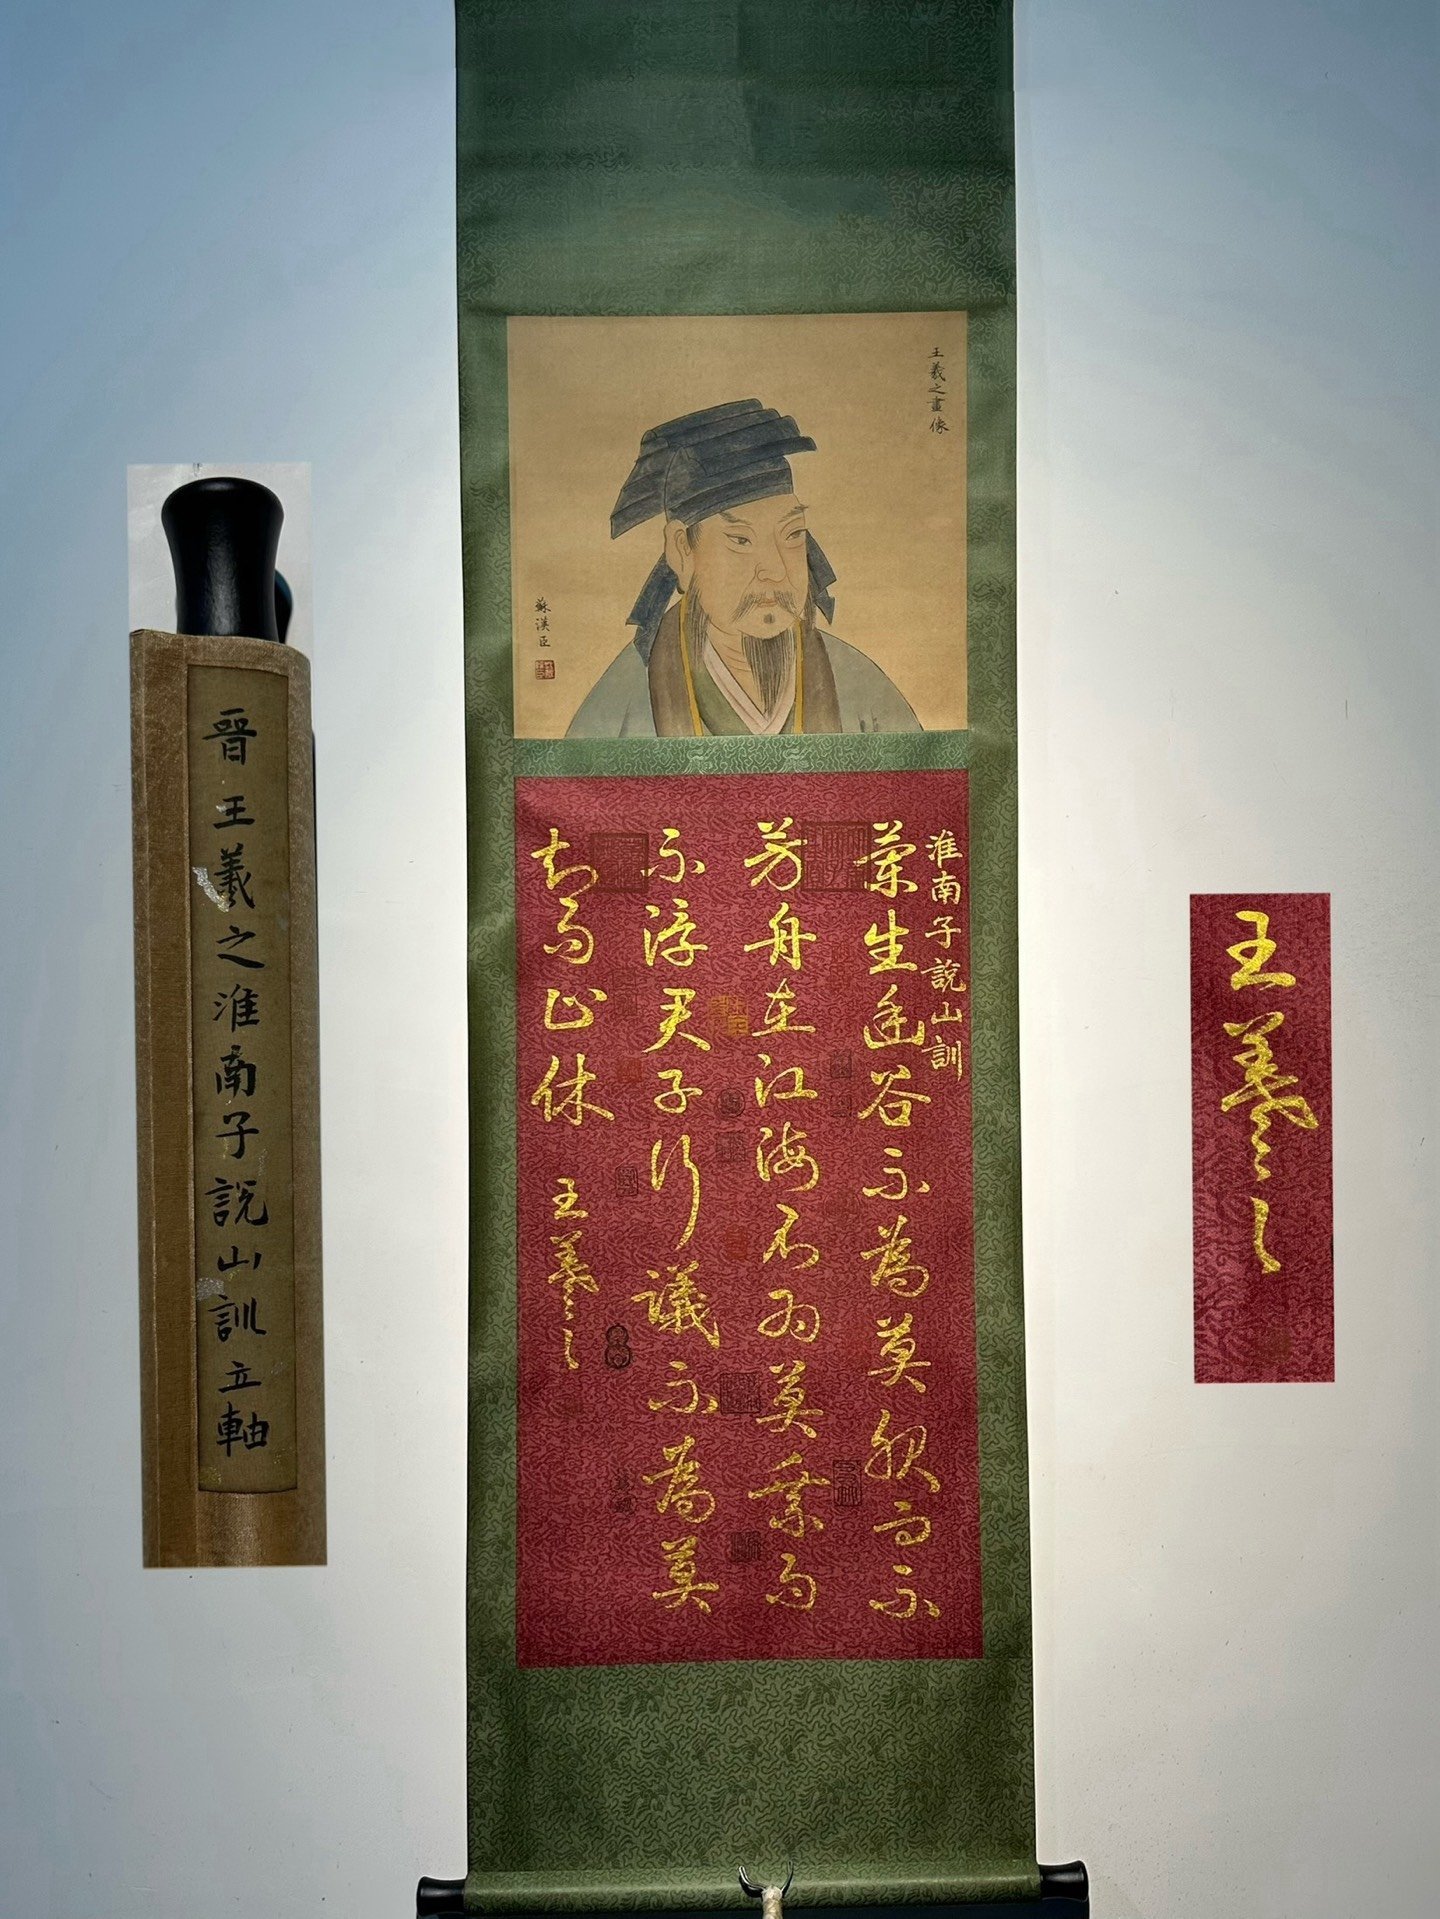 王羲之畫像
蘇漢臣
淮南子說山訓
蘭生幽谷不為莫服而不
芳舟在江海不為莫乘而
不浮君子行議不為莫
知而止休
王羲之
晉王羲之淮南子說山訓立軸
王羲之